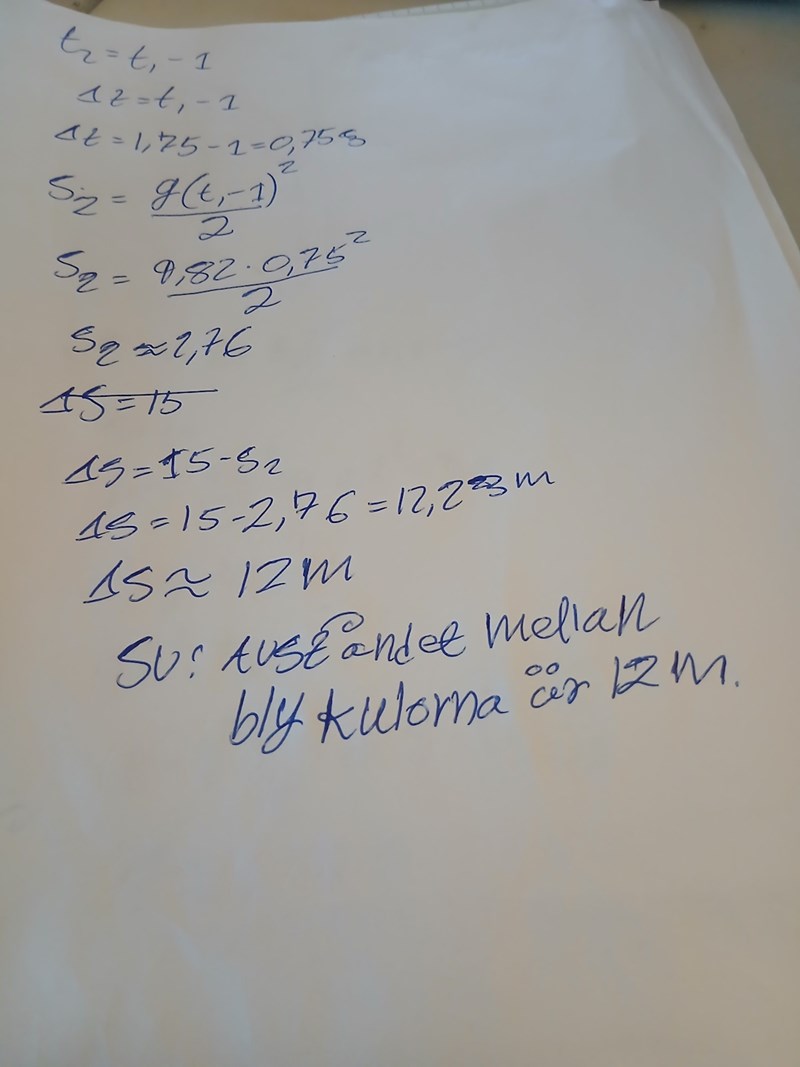 t₂ = t₁ - 1
Δt = t₁ - 1
Δt = 1,75 - 1 = 0,75s
S₂ = g(t₁-1)² / 2
S₂ = 9,82 · 0,75² / 2
S₂ ≈ 2,76
ΔS = 15
ΔS = 15 - S₂
ΔS = 15 - 2,76 = 12,23m
ΔS ≈ 12m
SV: Avståndet mellan
blykulorna är 12m.